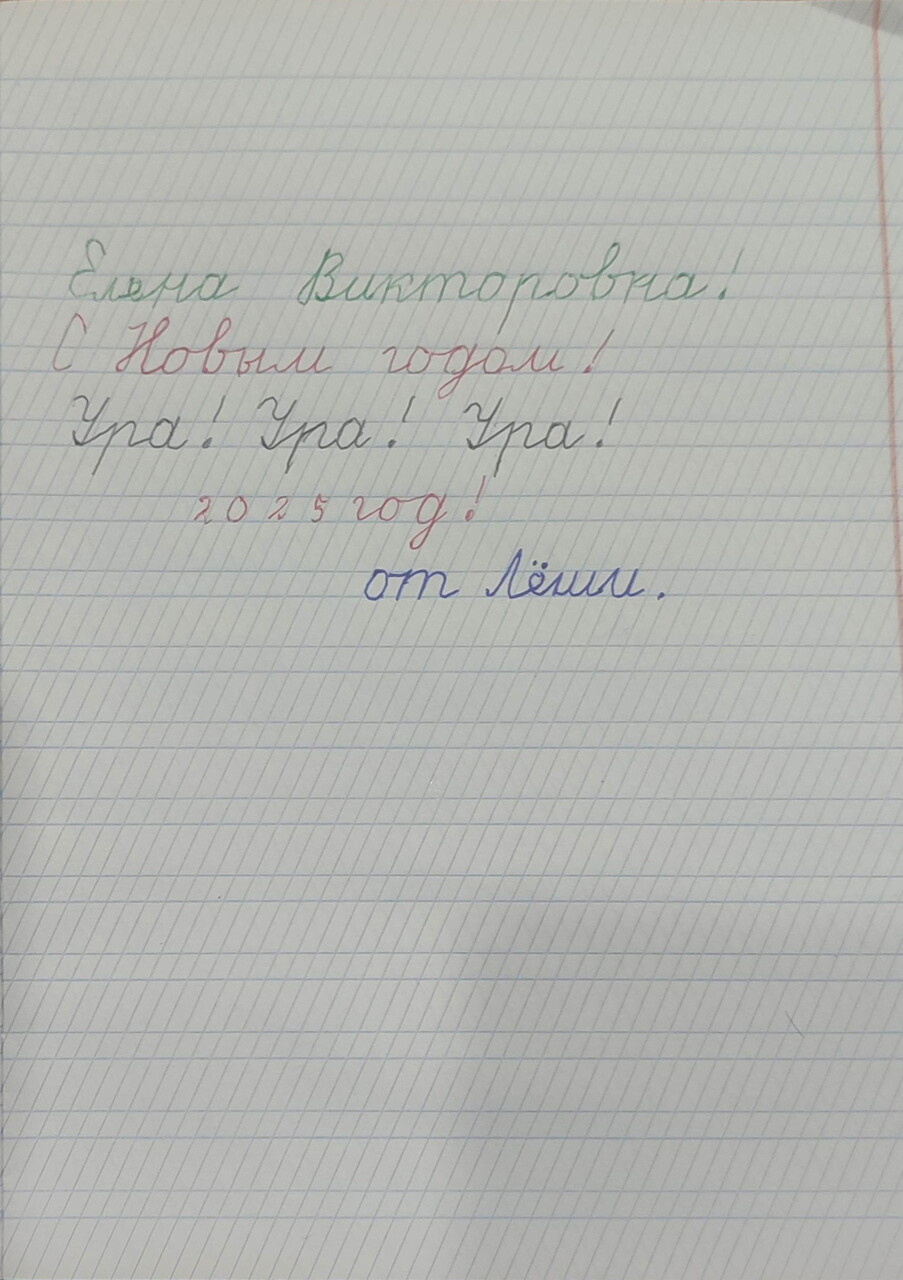 Елена Викторовна!
С Новым годом!
Ура! Ура! Ура!
2025 год!
от Лёши.